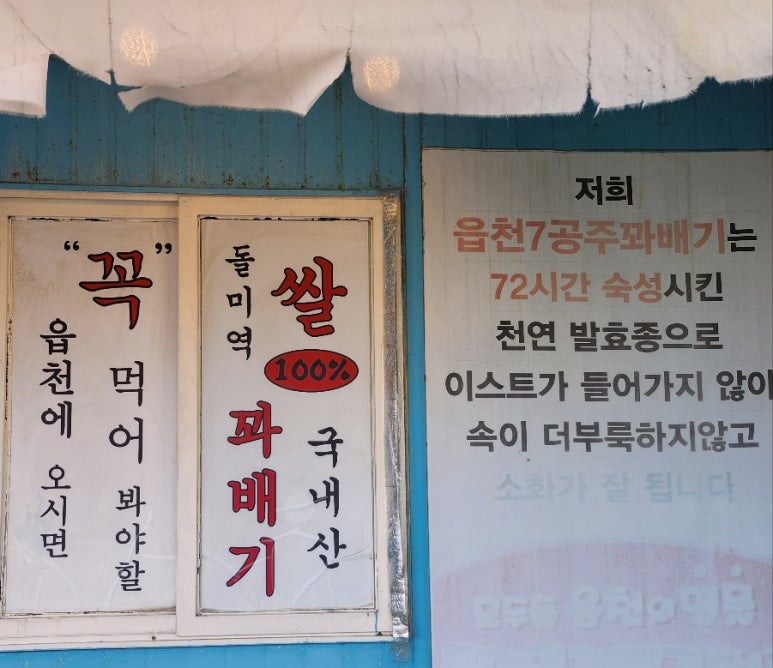 읍천에 오시면
“꼭” 먹어 봐야할
돌미역
쌀
100%
꽈배기
국내산
저희
읍천7공주꽈배기는
72시간 숙성시킨
천연 발효종으로
이스트가 들어가지 않아
속이 더부룩하지않고
소화가 잘 됩니다
모두들 읍천의 명물